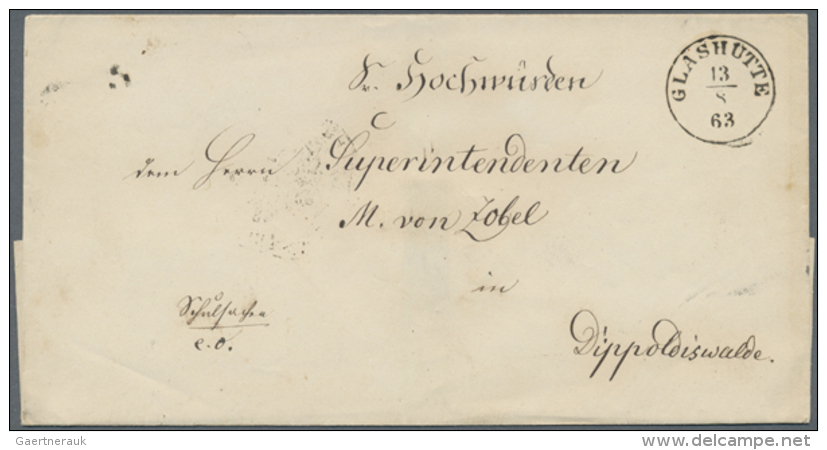 GLASHÜTTE
13
8
63
Sr. Hochwürden
dem Herrn Superintendenten
M. von Zobel
in
Schulsache
e. o.
Dippoldiswalde.
Gaertnerauk
delcampe.net